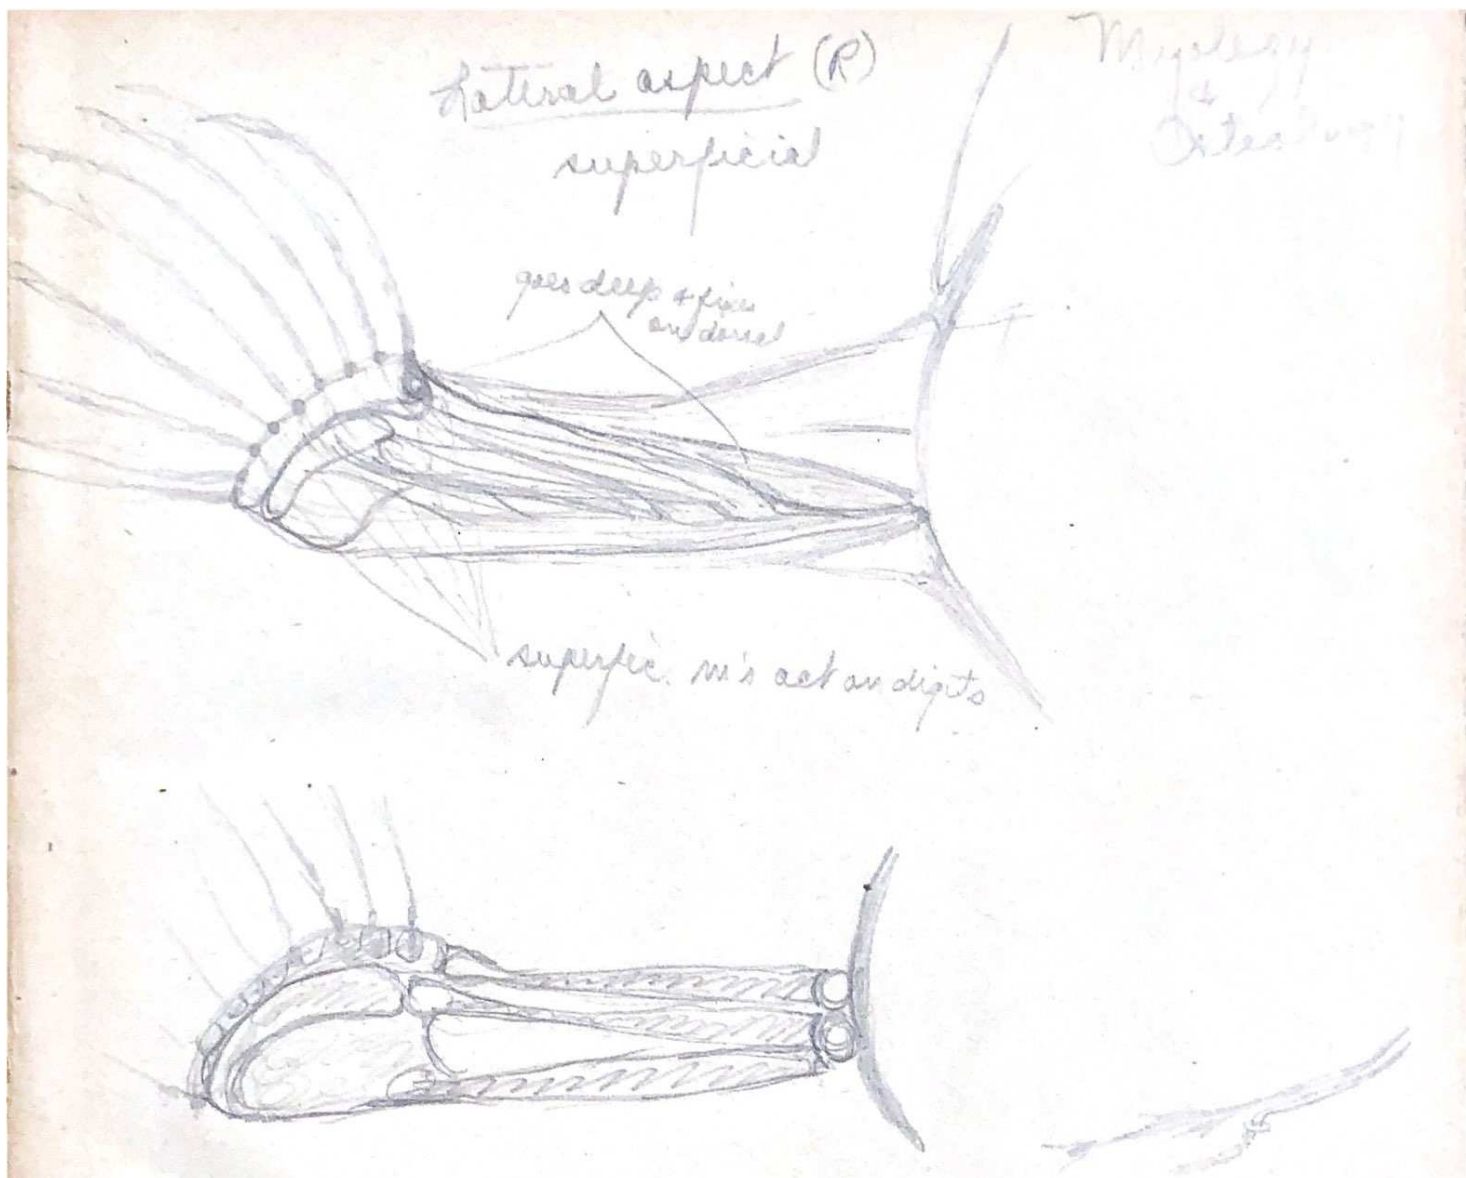 Lateral aspect (R)
superficial
Myology
&
Osteology
goes deep & fixes
on dorsal
superfic. m's act on digits